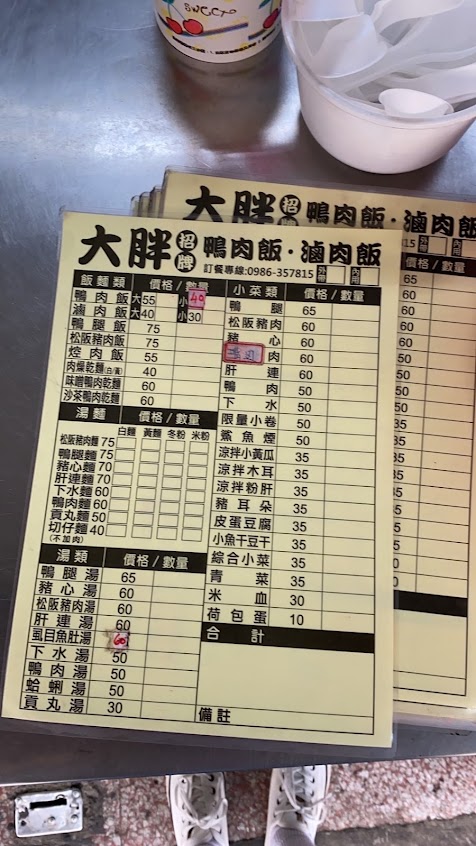 SWEET
大胖 招牌 鴨肉飯・滷肉飯
訂餐專線:0986-357815 外帶 內用
飯麵類 價格/數量
鴨肉飯 大55 小40
滷肉飯 大40 小30
鴨腿飯 75
松阪豬肉飯 75
焢肉飯 55
肉燥乾麵(白/黃) 40
味噌鴨肉乾麵 60
沙茶鴨肉乾麵 60
湯麵 價格/數量
白麵 黃麵 冬粉 米粉
松阪豬肉麵 75
鴨腿麵 75
豬心麵 70
肝連麵 70
下水麵 60
鴨肉麵 60
貢丸麵 50
切仔麵 40
(不加肉)
湯類 價格/數量
鴨腿湯 65
豬心湯 60
松阪豬肉湯 60
肝連湯 60
虱目魚肚湯 60
下水湯 50
鴨肉湯 50
蛤蜊湯 50
貢丸湯 30
小菜類 價格/數量
鴨腿 65
松阪豬肉 60
豬心 60
肉 60
肝連 60
鴨肉 50
下水 50
限量小卷 50
鯊魚煙 50
涼拌小黃瓜 35
涼拌木耳 35
涼拌粉肝 35
豬耳朵 35
皮蛋豆腐 35
小魚干豆干 35
綜合小菜 35
青菜 35
米血 30
荷包蛋 10
合計
備註
大胖 招牌 鴨肉飯・滷肉飯
815 外帶 內用
價格/數量